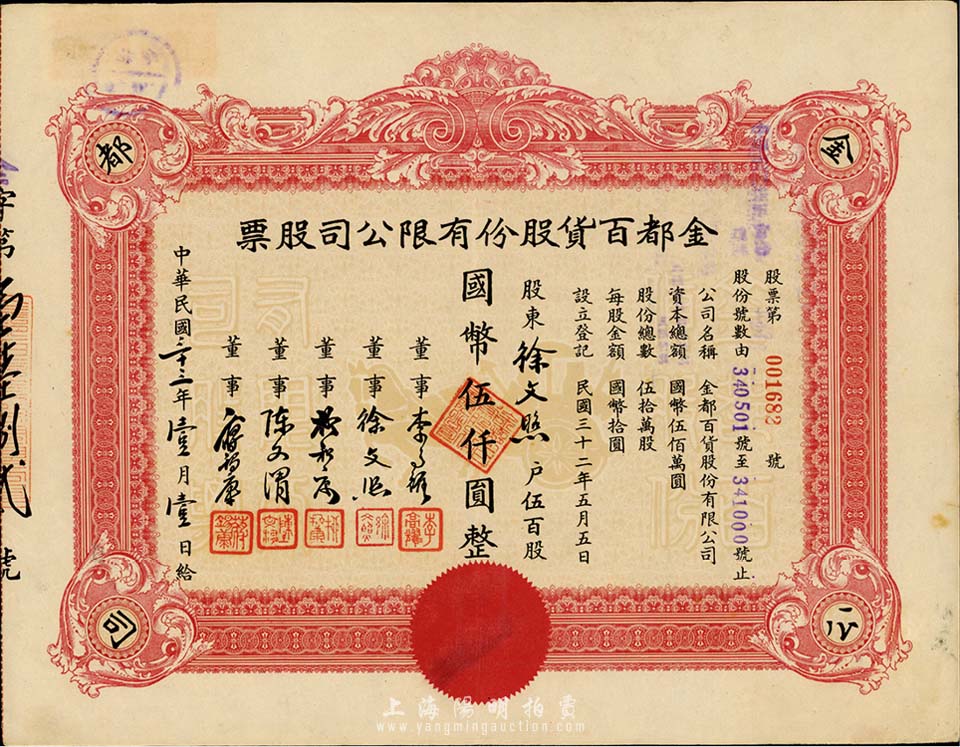 金都百貨股份有限公司股票
股票第 001682 號
股份號數由 340501 號至 341000 號止
公司名稱 金都百貨股份有限公司
資本總額 國幣伍佰萬圓
股份總數 伍拾萬股
每股金額 國幣拾圓
設立登記 民國三十二年五月五日
股東徐文照户伍百股
國幣伍仟圓整
董事李
董事徐文照
董事
董事陈文渭
董事
中華民國三十三年壹月壹日給
字第
號
金
都
公
司
上海陽明拍賣
www.yangmingauction.com